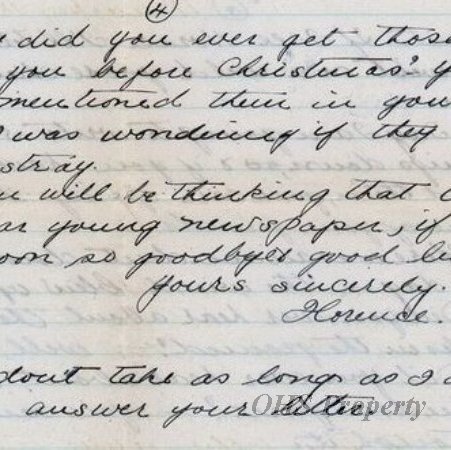 4
did you ever get thos
you before Christmas? Y
mentioned them in you
was wondering if they
stray.
will be thinking that
young newspaper, if
soon so goodbye & good lu
Yours sincerely.
Florence.
don't take as long as I
answer your letter
OHS Property